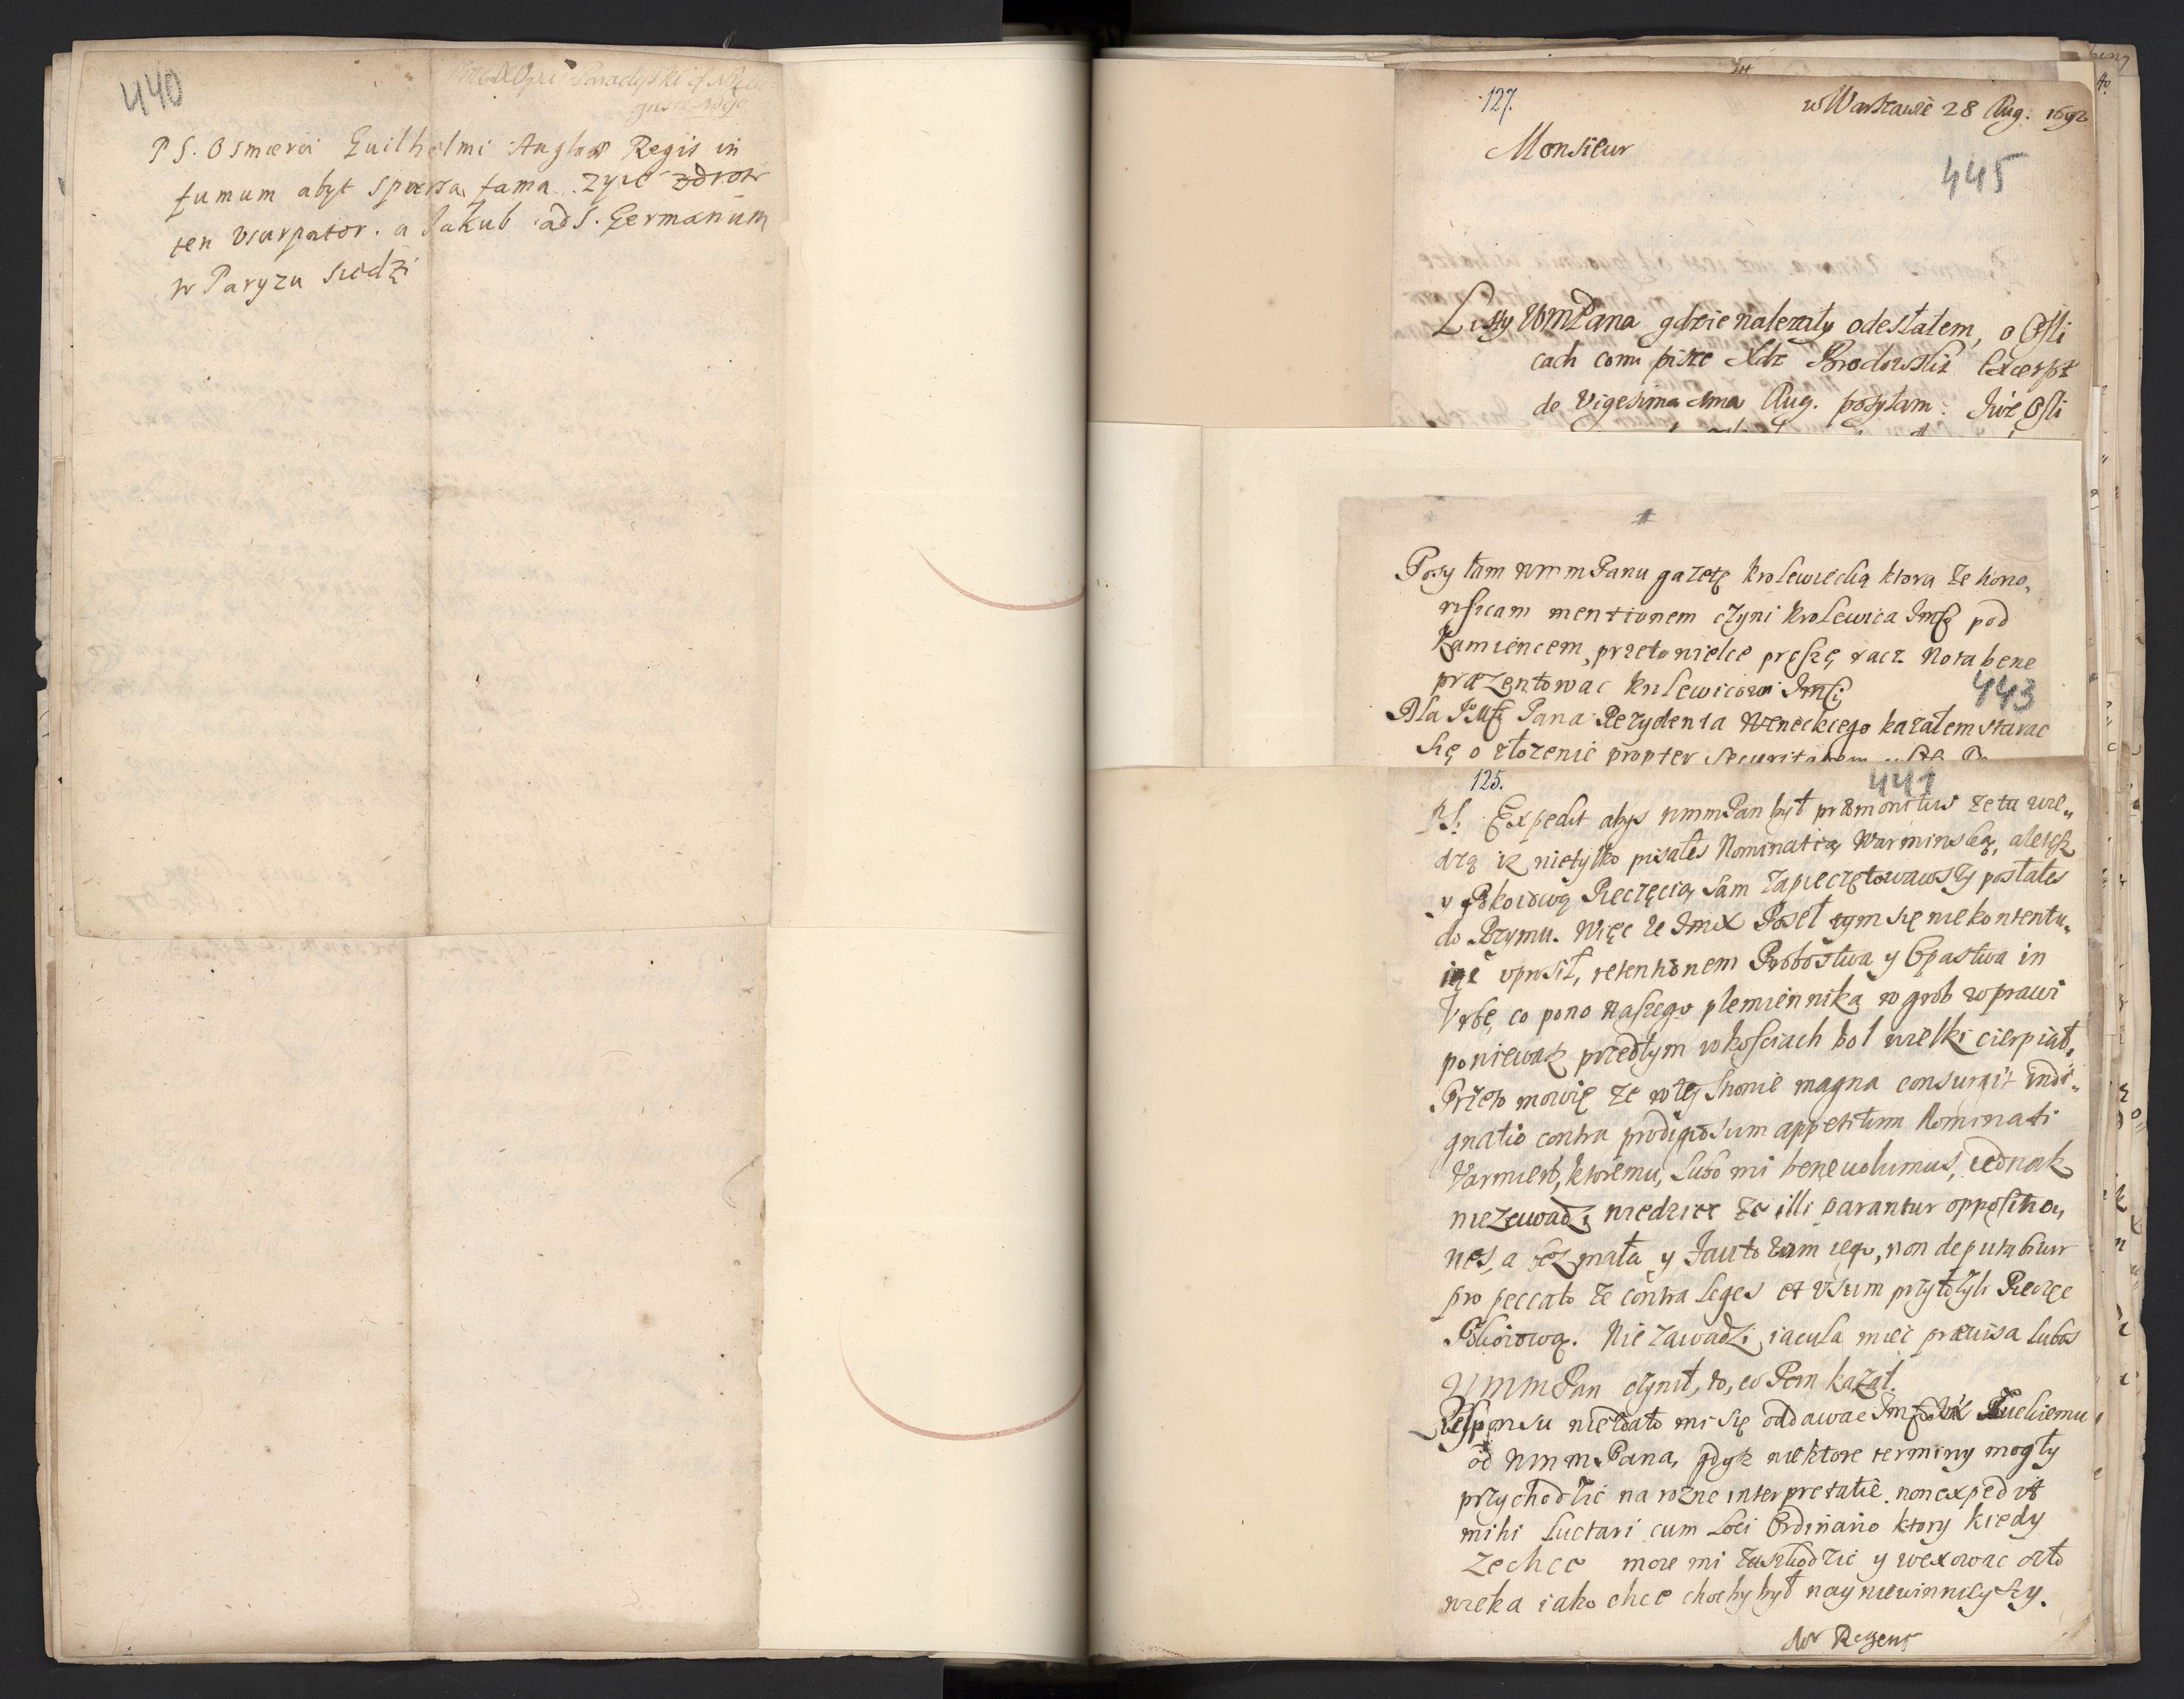 440
PS. O śmierci Guilhelmi Anglor Regis in
fumum abyt sparsa fama. żyie zdrow
ten Vsurpator. a Jakub ad S. Germanum
w Paryzu siedzi
127.
w Warszawie 28 Aug: 1692
Monsieur
445
Listy WMPana gdzie nalezały odesłałem, o Osli
cach comu pisze Xdz Brodowski Excerpt
de Vigesima Aug. posyłam. Już Osli
#
Posyłam wmmPanu gazetę krolewiecką ktora że hono,
rificam mentionem czyni krolewica Jmści pod
Kamiencem, przeto wielce proszę racz Nota bene
præzentowac krolewicowi Jmści
443
Dla Pana Rezydenta Weneckiego kazałem starac
się o złozenie propter securitatem
125.
441
PS. Expedit abys wmmPan był præmonitus ze tu wie,,
dzą iz nietylko pisałes Nominatią Warminską, ale tesz
y Pokoiową Pieczęcią sam zapieczętowawszy posłałes
do Rzymu. Więc ze Jmć X Poseł tym się niekontentu,,
iąc vprosił, retentionem Probostwa y Opastwa in
Vrbe, co pono naszego plemiennika w grob wprawi
poniewasz przedtym w kościach bol wielki cierpiał,
Przeto mowię ze w tey stronie magna consurgit indi,,
gnatio contra prodigiosum appetitum Nominati
Varmien, ktoremu, lubo mi bene volumus, iednak
niezawadzi wiedziec ze illi parantur oppositio,,
nes, a bez mała y fautorum iego, non deputabitur
pro peccato ze contra leges et Vsum przyłozyli Pieczęc
Pokoiową. Nie zawadzi iacula miec prævisa lubos
WmmPan czynił, to, co Pan kazał.
Responsu niezdało mi się oddawac Jmć Xdzu Łuckiemu
od WmmPana, gdysz niektore terminy mogły
przychodzic na rozne interpretatie. non expedit
mihi luctari cum loci Ordinario ktory kiedy
zechce moze mi zaszkodzic y wexowac czło
wieka iako chce chocby był nayniewinnieyszy.